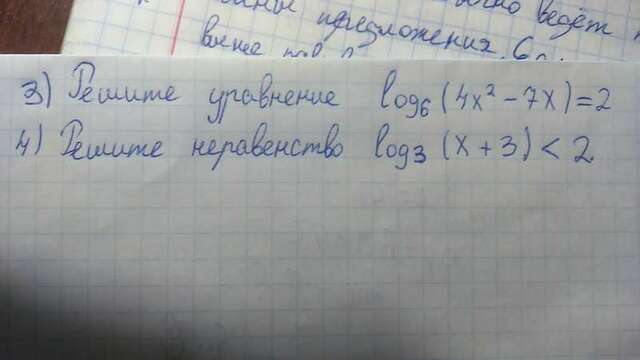 предложения.
выше
3) Решите уравнение log₆ (4x² - 7x) = 2
4) Решите неравенство log₃ (x + 3) < 2